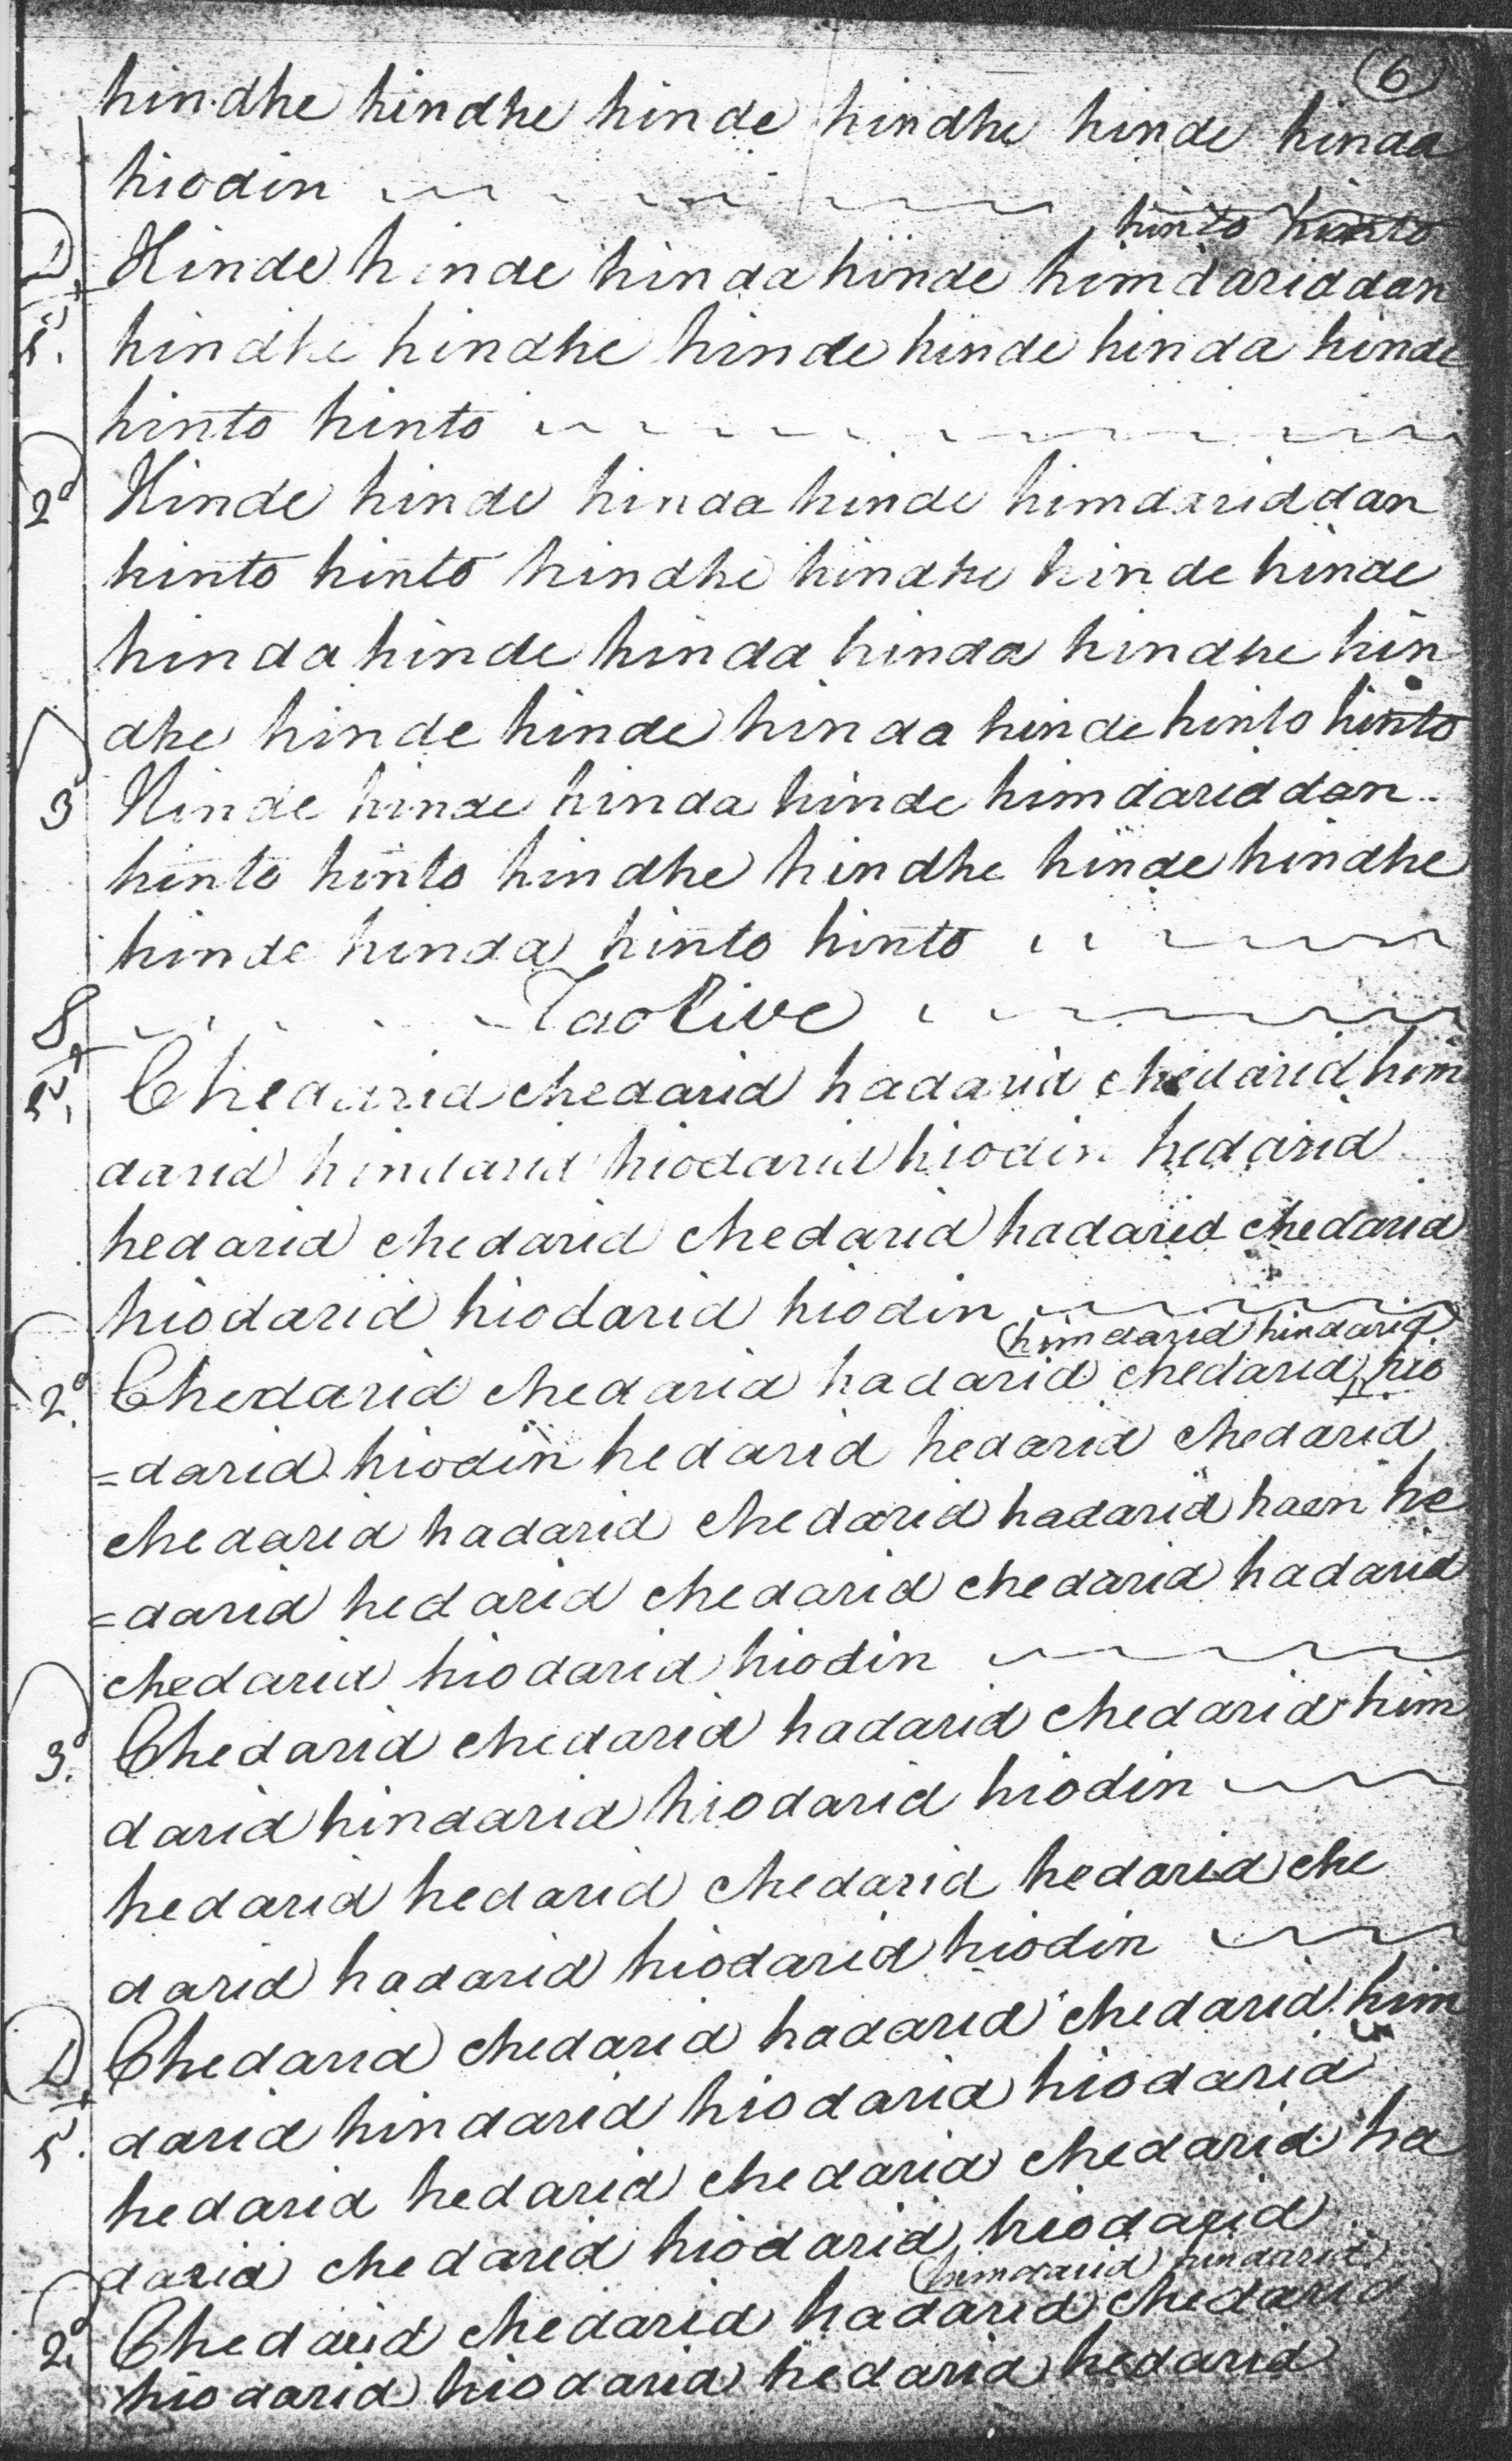 6
hindhe hindhe hinde hindhe hinde hinda
hiodin
hinto hinto
Hinde hinde hinda hinde himdariddan
hindhe hindhe hinde hinde hinda hinde
hinto hinto
2º Hinde hinde hinda hinde himdariddan
hinto hinto hindhe hindhe hinde hinde
hinda hinde hinda hinda hindhe hin
dhe hinde hinde hinda hinde hinto hinto
3 Hinde hinde hinda hinde himdariddan
hinto hinto hindhe hindhe hinde hindhe
hinde hinda hinto hinto
Taolive
Chedarid chedarid hadarid chedarid him
darid hindarid hiodarid hiodin hedarid
hedarid chedarid chedarid hadarid chedarid
hiodarid hiodarid hiodin
(himdarid hindarid)
2º Chedarid chedarid hadarid chedarid hio
=darid hiodin hedarid hedarid chedarid
chedarid hadarid chedarid hadarid haen he
=darid hedarid chedarid chedarid hadarid
chedarid hiodarid hiodin
3º Chedarid chedarid hadarid chedarid him
darid hindarid hiodarid hiodin
hedarid hedarid chedarid hedarid che
darid hadarid hiodarid hiodin
Chedarid chedarid hadarid chedarid him
darid hindarid hiodarid hiodarid
hedarid hedarid chedarid chedarid ha
darid chedarid hiodarid hiodarid
(himdarid hindarid)
2º Chedarid chedarid hadarid chedarid
hiodarid hiodarid hedarid hedarid